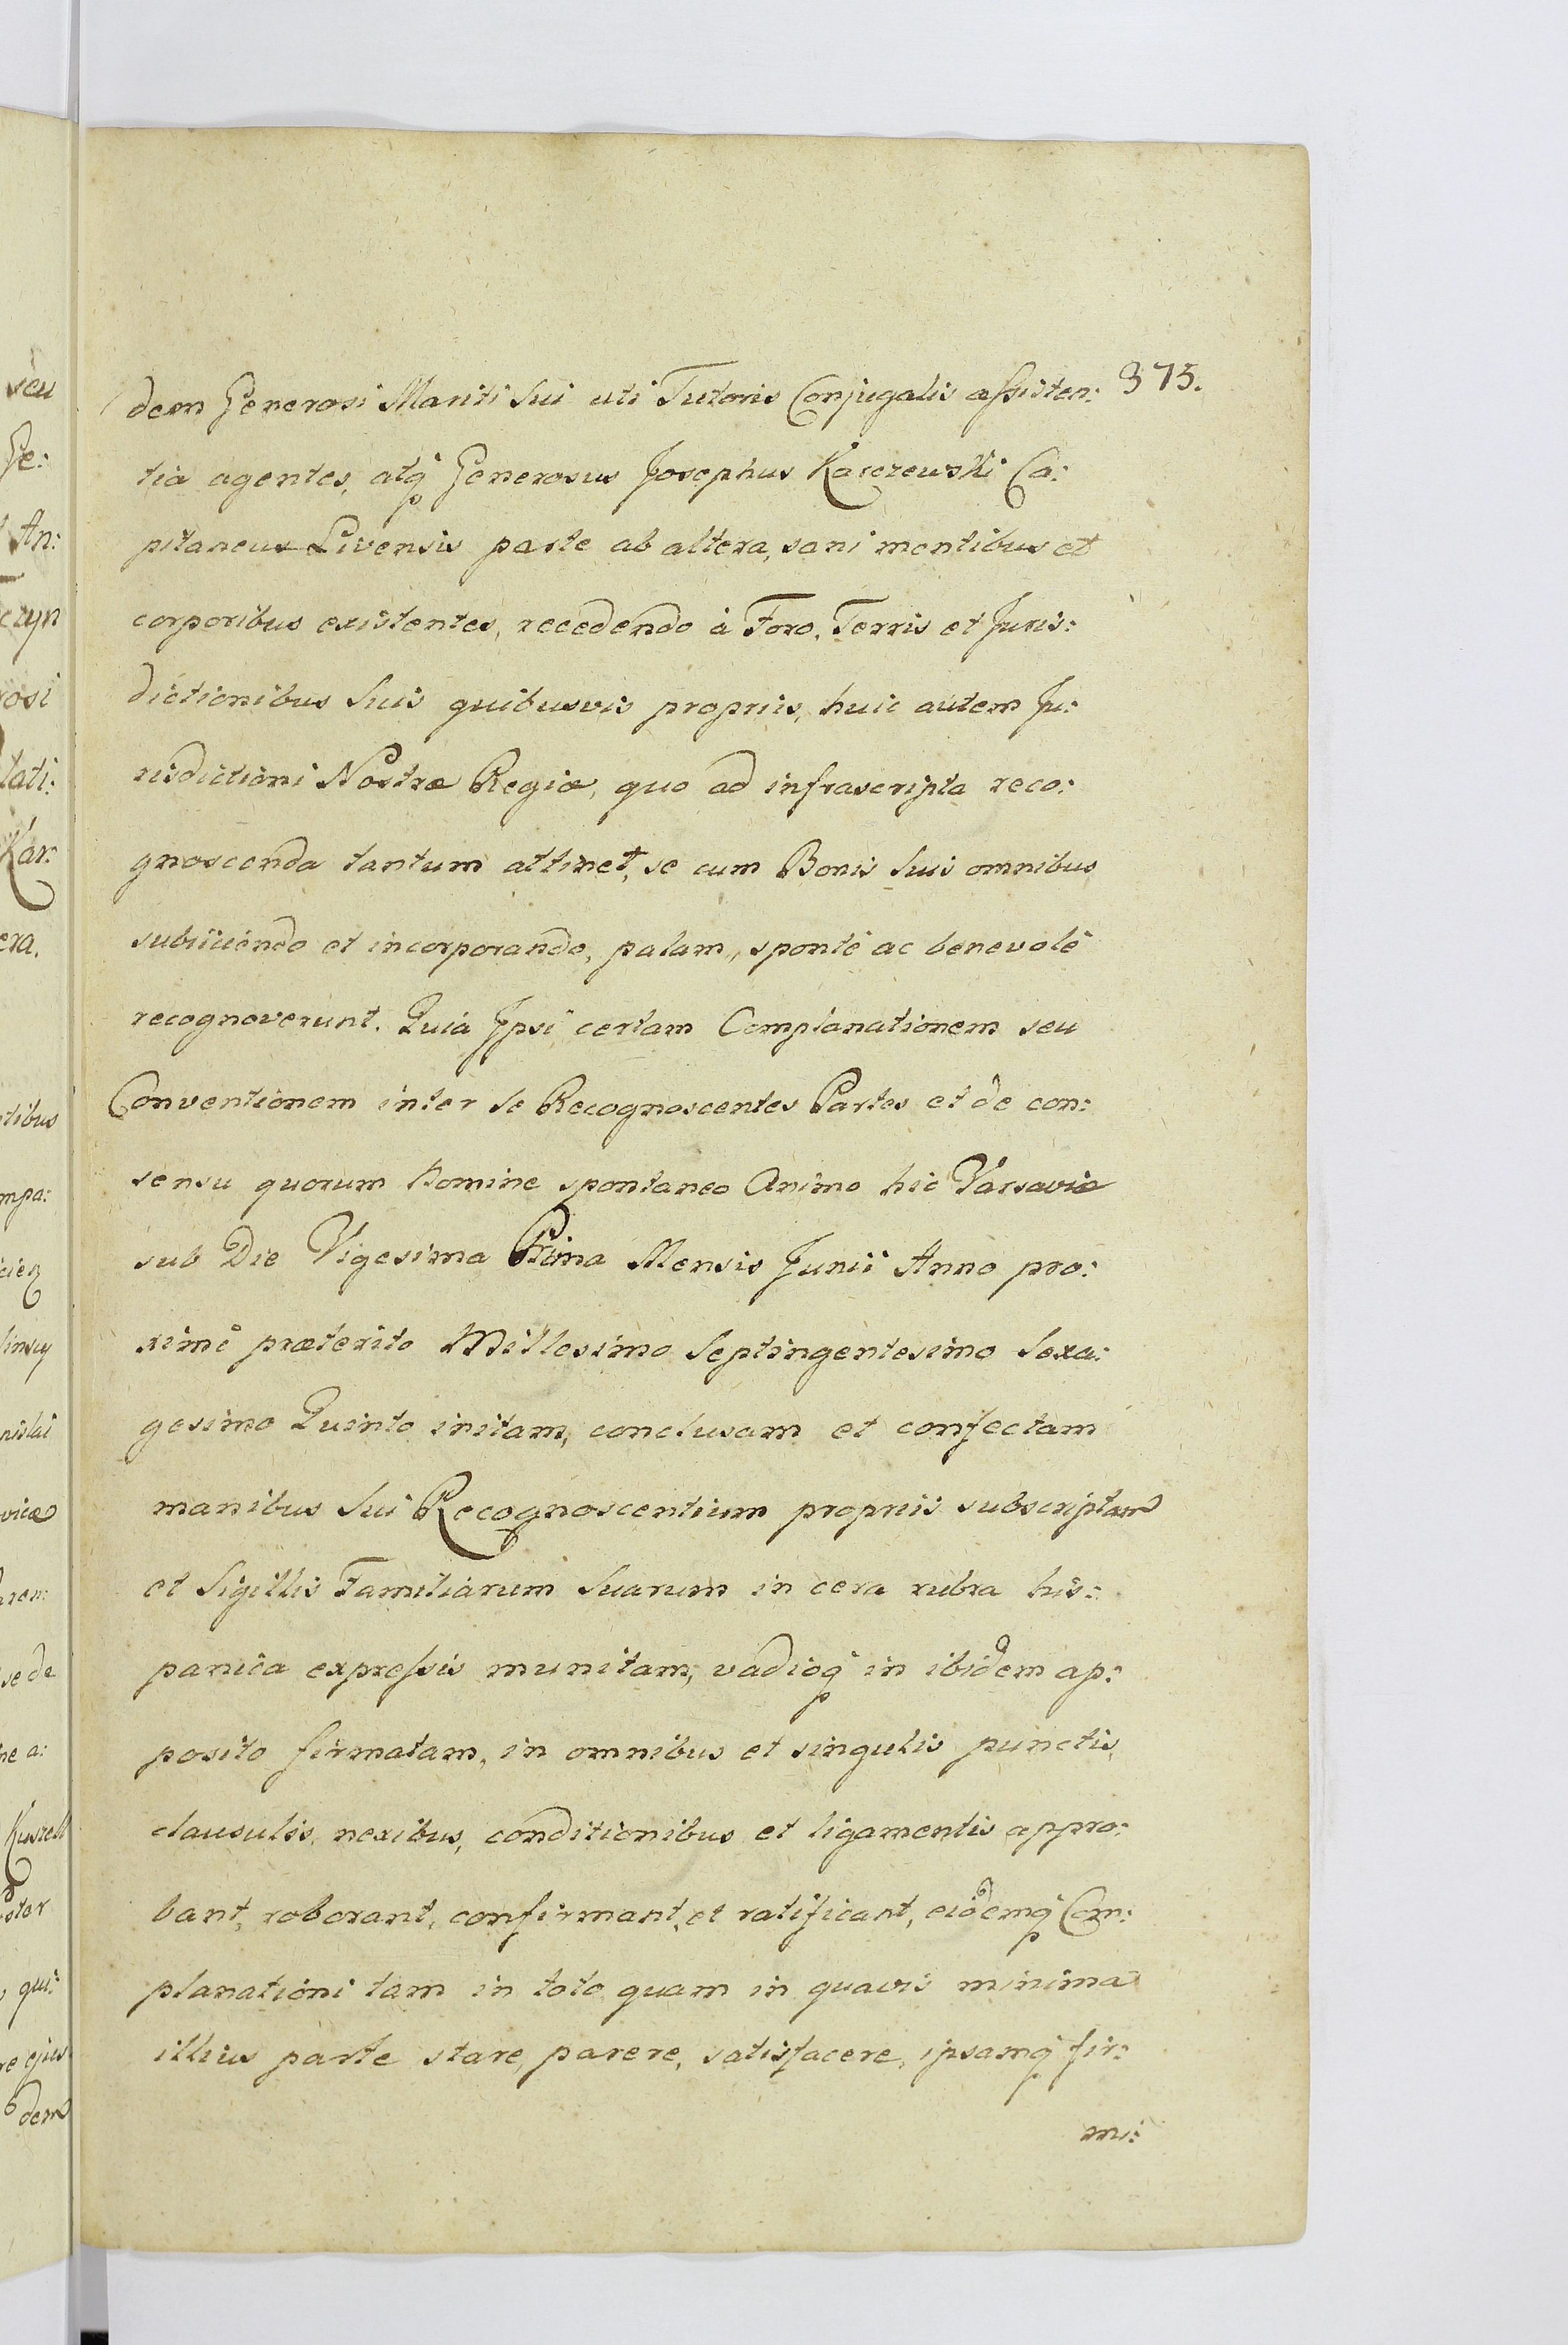 375.
dem Generosi Mariti Sui uti Tutoris Conjugalis assisten:
tia agentes, atq̃ Generosus Josephus Karczewski Ca:
pitaneus Livensis parte ab altera, sani mentibus et
corporibus existentes, recedendo à Foro, Terris et Juris:
dictionibus Suis quibusvis propriis, huic autem Ju:
risdictioni Nostræ Regiæ, quo ad infrascripta reco:
gnoscenda tantum attinet, se cum Bonis Suis omnibus
subiiciendo et incorporando, palam, spontè ac benevolè
recognoverunt. Quia Ipsi certam Complanationem seu
Conventionem inter se Recognoscentes Partes et de con:
sensu quorum Nomine spontaneo Animo hic Varsaviæ
sub Die Vigesima Prima Mensis Junii Anno pro:
ximè præterito Millesimo Septingentesimo Sexa:
gesimo Quinto initam, conclusam et confectam
manibus Sui Recognoscentium propriis subscriptam
et Sigillis Familiarum Suarum in cera rubra his:
panica expressis munitam, vadioq̃ in ibidem ap:
posito firmatam, in omnibus et singulis punctis,
clausulis, nexibus, conditionibus et ligamentis appro:
bant, roborant, confirmant, et ratificant, eidemq̃ Com:
planationi tam in toto quam in quavis minima
illius parte stare, parere, satisfacere, ipsamq̃ fir:
mi:
seu
Ge:
An:
czyn
rosi
tati:
Kar:
era.
tibus
mpa:
nislai
viæ
sede
ne a:
Kuszell
qui:
re ejus
dem